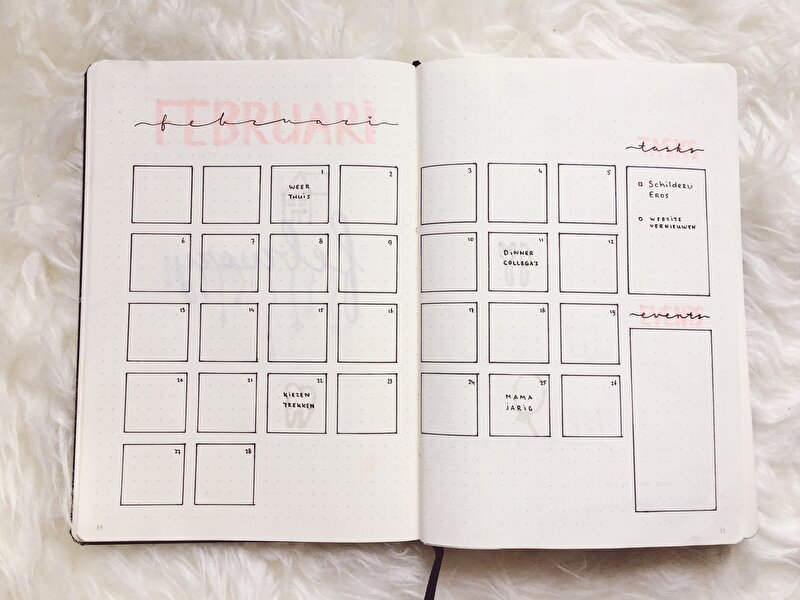 FEBRUARI
februari
TASKS
tasks
1 2 3 4 5
WEER
THUIS
□ SCHILDERIJ
EROS
□ WEBSITE
VERNIEUWEN
6 7 8 9 10 11 12
DINNER
COLLEGA'S
EVENTS
events
13 14 15 16 17 18 19
20 21 22 23 24 25 26
KIEZEN
TREKKEN
MAMA
JARIG
27 28